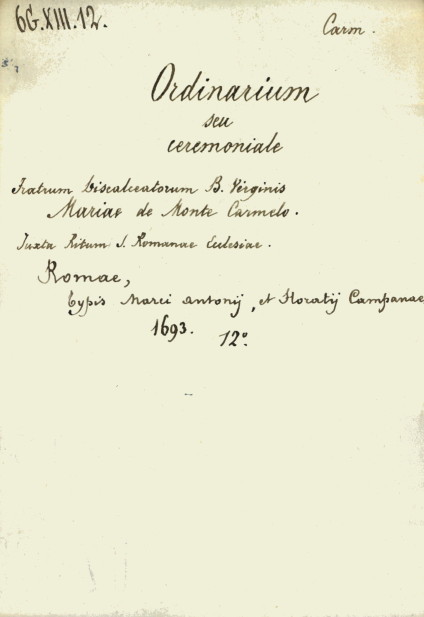 6G.XIII.12.
Carm.
Ordinarium
seu
ceremoniale
Fratrum Discalceatorum B. Virginis
Mariae de Monte Carmelo.
Juxta Ritum S. Romanae Ecclesiae.
Romae,
Typis Marci Antonij, et Horatij Campanae
1693. 12°.